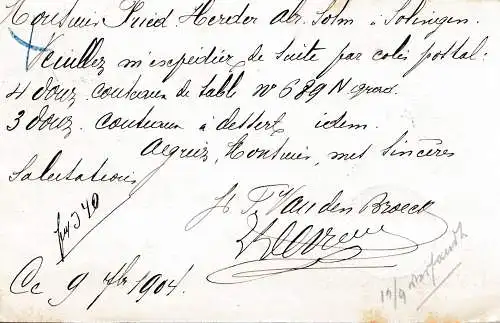 Monsieur Fried. Herder Abr. Sohn à Solingen.
Veuillez m'expédier de suite par colis postal:
4 douz. couteaux de table n° 689 N grad.
3 douz. couteaux à dessert idem.
Agréez, Monsieur, mes sincères
Salutations
Van den Broeck
Ce 9 7bre 1904.
12/9